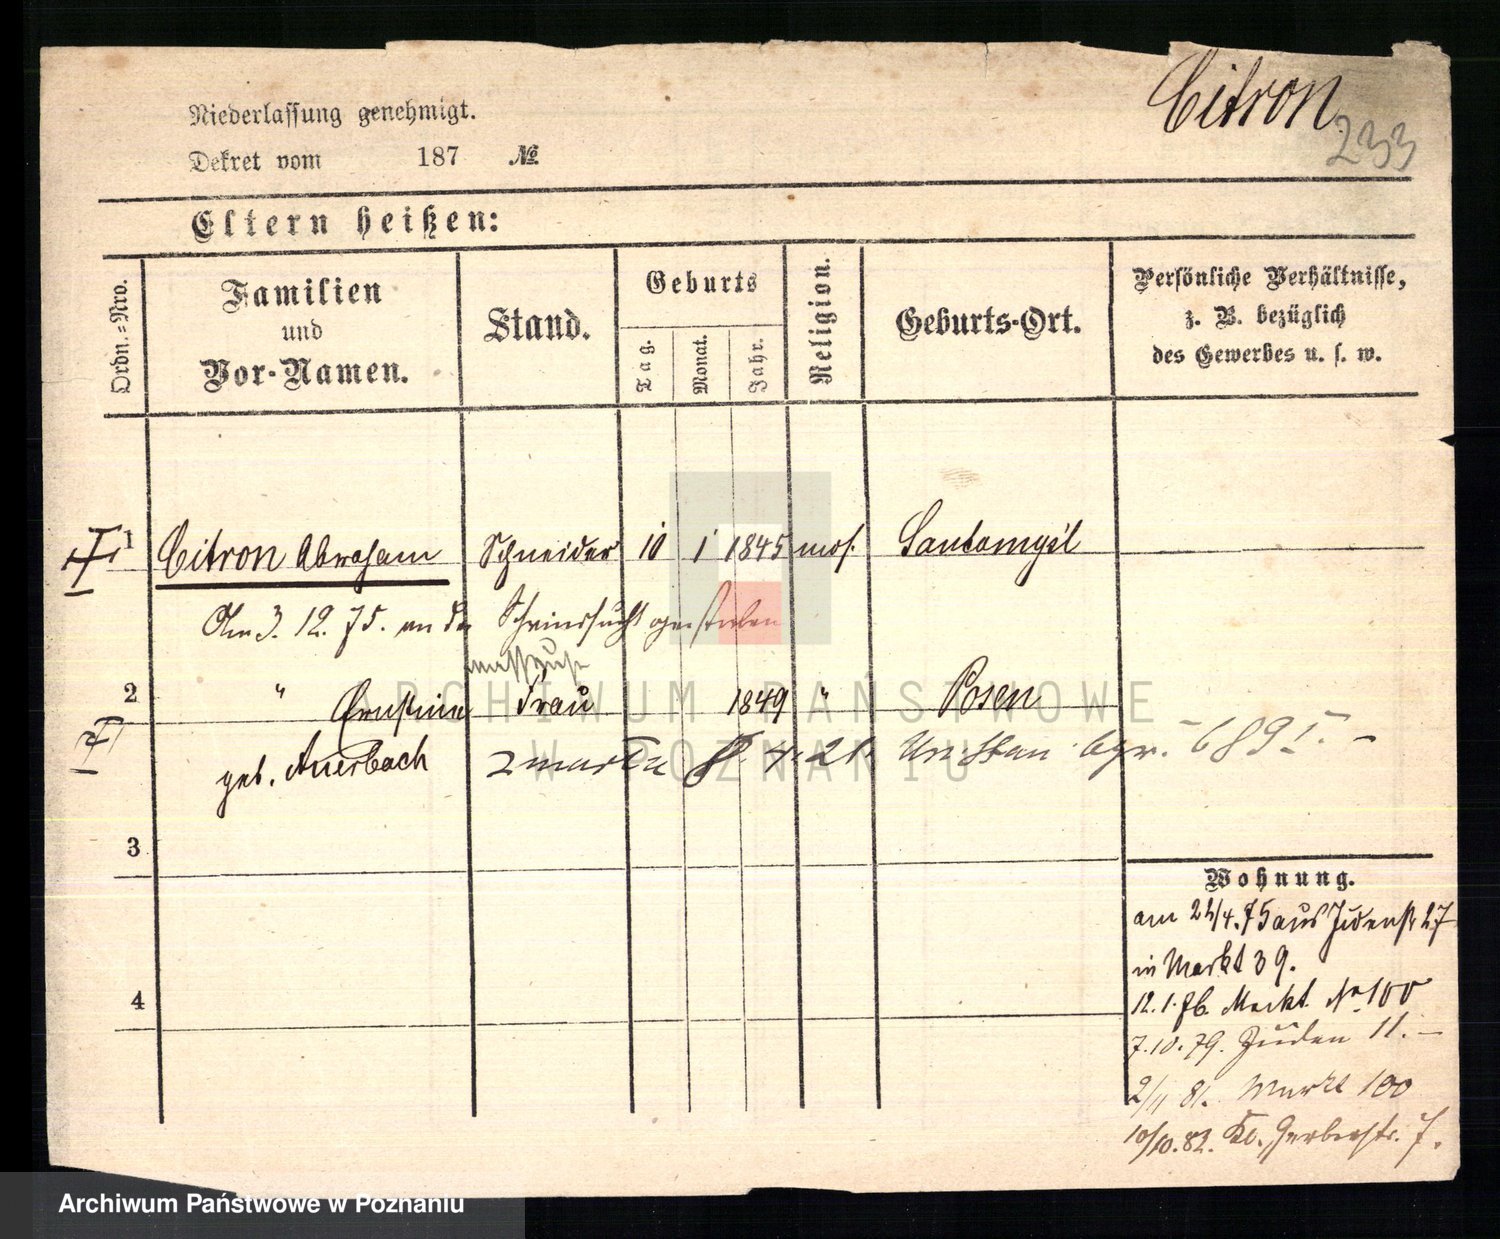 Citron
233
Niederlassung genehmigt.
Dekret vom 187 №
Eltern heißen:
Ordn.=Nro.
Familien
und
Vor-Namen.
Stand.
Geburts
Tag.
Monat.
Jahr.
Religion.
Geburts-Ort.
Persönliche Verhältnisse,
z. B. bezüglich
des Gewerbes u. s. w.
1 Citron Abraham Schneider 10 1 1845 mos. Santomysl
Am 3. 12. 75. an der Schwindsucht gestorben
2 " Ernstine Frau 1849 " Posen
geb. Auerbach
3
4
Wohnung.
am 24/4. 75 aus Judenstr 27
in Markt 39.
12. 1. 76. Markt No 100
7. 10. 79. Juden 11. —
2/11 81. Markt 100
10/10. 82. Kl. Gerberstr. 7.
ARCHIWUM PAŃSTWOWE
W POZNANIU
Archiwum Państwowe w Poznaniu